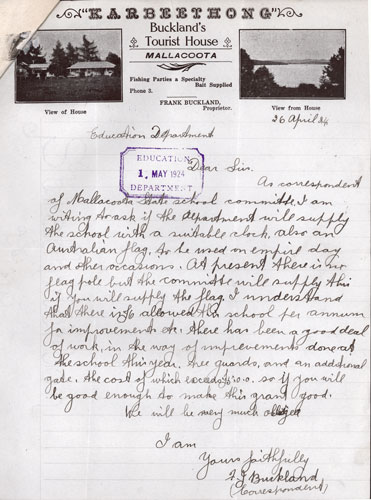 "KARBEETHONG"
Buckland's
Tourist House
MALLACOOTA
Fishing Parties a Specialty
Bait Supplied
Phone 5.
FRANK BUCKLAND,
Proprietor.
View of House
View from House
26 April 24
Education Department
EDUCATION
1. MAY 1924
DEPARTMENT
Dear Sir.
As correspondent
of Mallacoota State school committee, I am
writing to ask if the department will supply
the school with a suitable clock, also an
Australian flag, to be used on empire day
and other occasions. At present there is no
flag pole but the committee will supply this
if you will supply the flag. I understand
that there is allowed this school per annum
for improvements etc. there has been a good deal
of work, in the way of improvements done at
the school this year, tree guards, and an additional
gate, the cost of which exceeds so if you will
be good enough to make this grant good.
We will be very much obliged
I am
Yours faithfully
F J Buckland
(Correspondent)